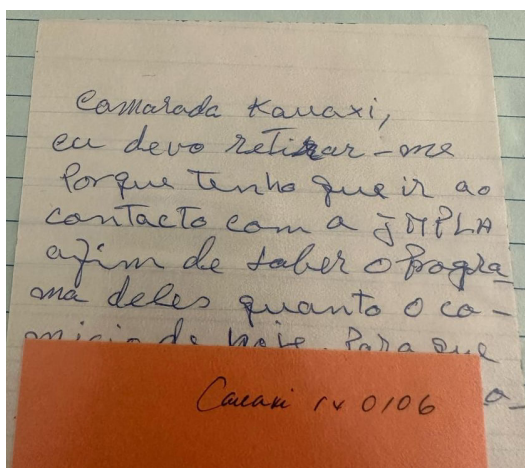 Camarada Kauaxi,
eu devo retirar-me
Porque tenho que ir ao
contacto com a JMPLA
afim de saber o Progra
ma deles quanto o co-
micio de hoje. Para que
0106